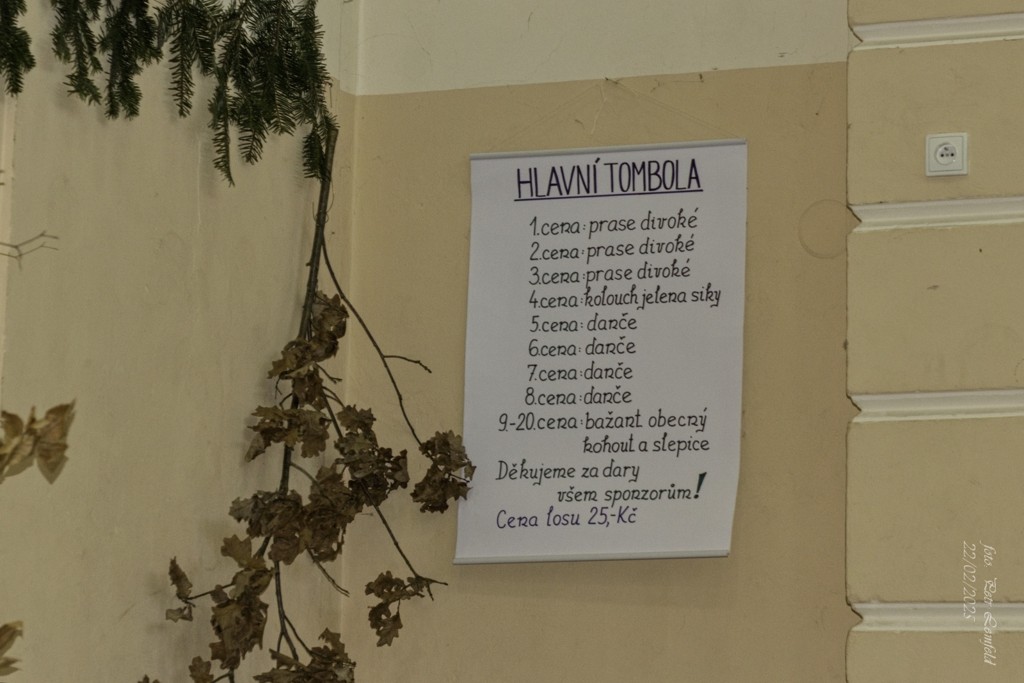 HLAVNÍ TOMBOLA
1.cena: prase divoké
2.cena: prase divoké
3.cena: prase divoké
4.cena: kolouch jelena siky
5.cena: danče
6.cena: danče
7.cena: danče
8.cena: danče
9.-20.cena: bažant obecný
kohout a slepice
Děkujeme za dary
všem sponzorům!
Cena losu 25,-Kč
foto Petr
22/02/2025